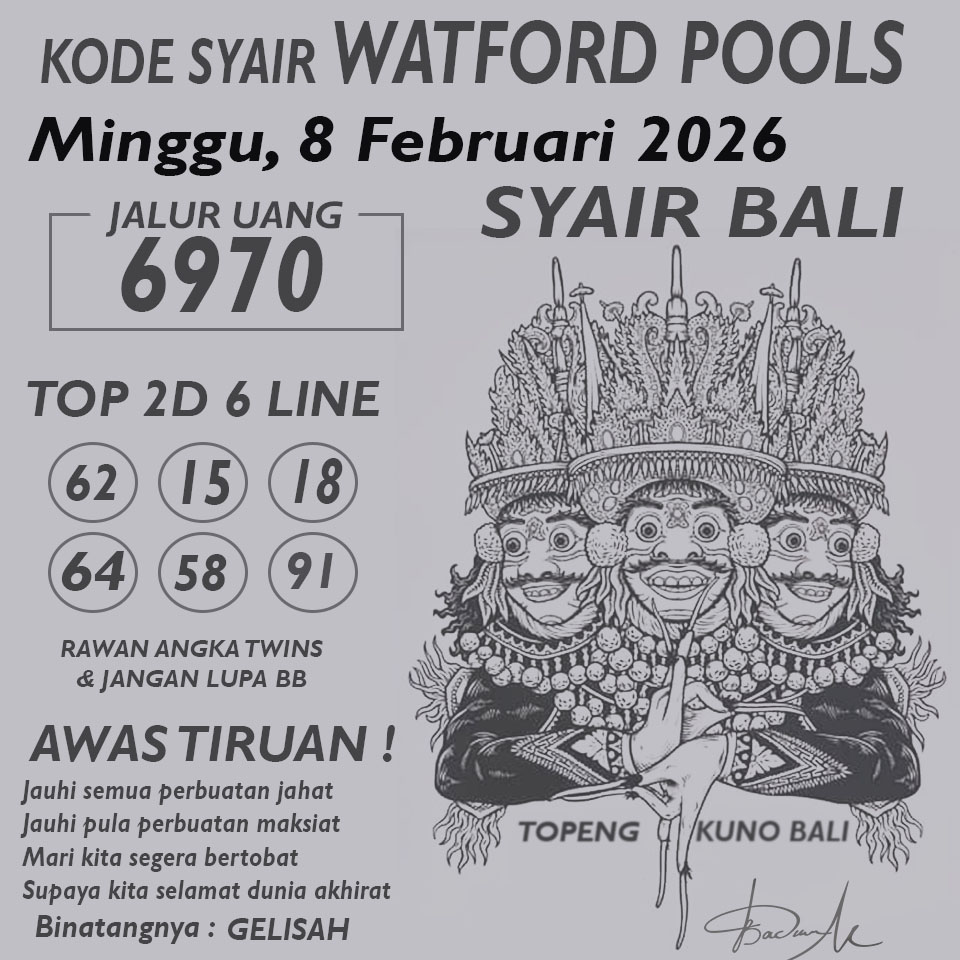 KODE SYAIR WATFORD POOLS
Minggu, 8 Februari 2026
SYAIR BALI
JALUR UANG
6970
TOP 2D 6 LINE
62 15 18
64 58 91
RAWAN ANGKA TWINS
& JANGAN LUPA BB
AWAS TIRUAN !
Jauhi semua perbuatan jahat
Jauhi pula perbuatan maksiat
Mari kita segera bertobat
Supaya kita selamat dunia akhirat
Binatangnya : GELISAH
TOPENG KUNO BALI